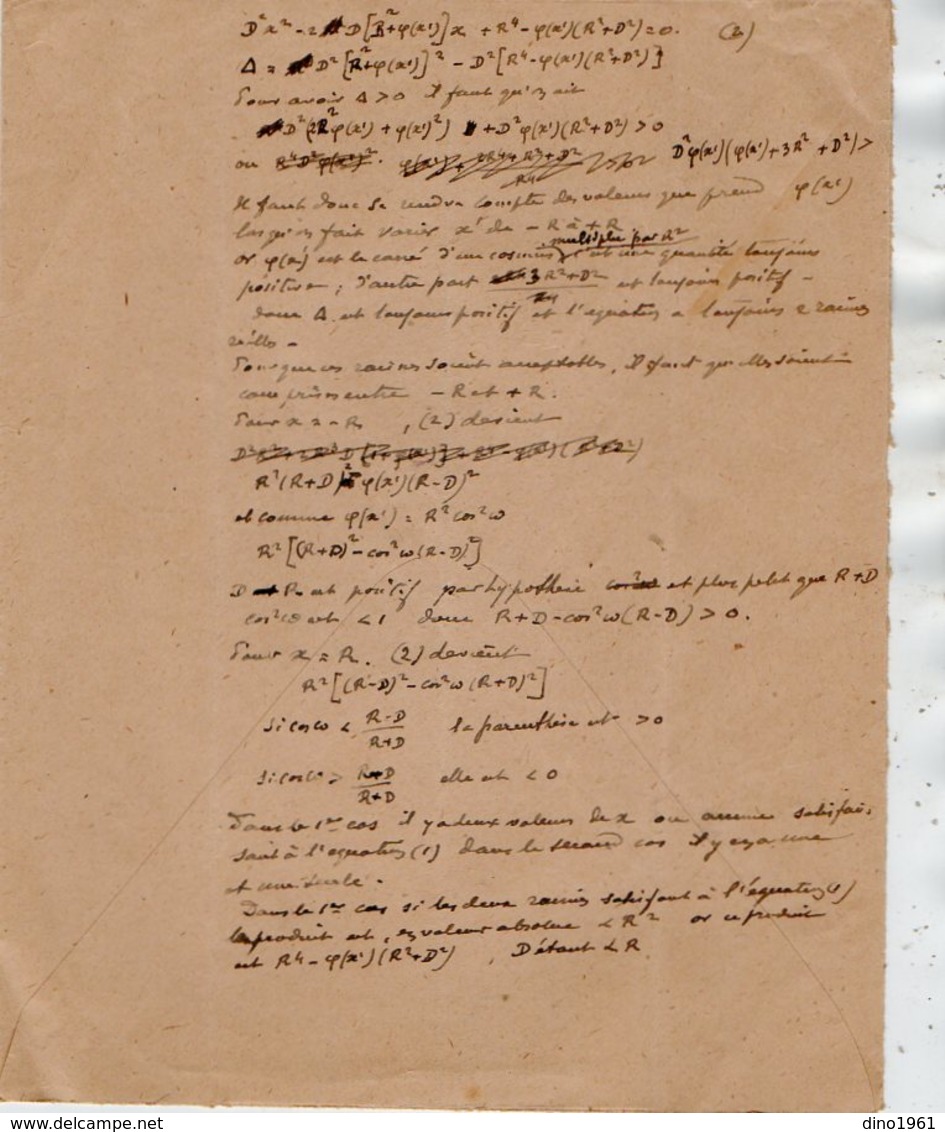 D²x² - 2 D[R²+φ(x')]x + R⁴ - φ(x')(R²+D²) = 0. (2)
Δ = D²[R²+φ(x')]² - D²[R⁴-φ(x')(R²+D²)]
Pour avoir Δ > 0 il faut qu'on ait
D²(2R²φ(x') + φ(x')²) + D²φ(x')(R²+D²) > 0
ou D²φ(x')(φ(x')+3R²+D²) >
Il faut donc se rendre compte des valeurs que prend φ(x')
lorsqu'on fait varier x' de - R à + R
multiplié par R²
or φ(x') est le carré d'un cosinus, c'est une quantité toujours
positive ; d'autre part 3R²+D² est toujours positif -
donc Δ est toujours positif et l'équation a toujours 2 racines
réelles -
Pour que ces racines soient acceptables, il faut qu'elles soient
comprises entre - R et + R.
Pour x = - R, (2) devient
R²(R+D)² - φ(x')(R-D)²
et comme φ(x') = R²cos²ω
R²[(R+D)² - cos²ω(R-D)²]
D R est positif par hypothèse et plus petit que R+D
cos²ω est < 1 donc R+D-cos²ω(R-D) > 0.
Pour x = R. (2) devient
R²[(R-D)² - cos²ω(R+D)²]
Si cosω < R-D / R+D la parenthèse est > 0
Si cosω > R-D / R+D elle est < 0
Dans le 1er cas il y a deux valeurs de x ou aucune satisfai-
sant à l'équation (1) dans le second cas il y en a une
et une seule.
Dans le 1er cas si les deux racines satisfont à l'équation (1)
le produit est, en valeur absolue < R² or ce produit
est R⁴ - φ(x')(R²+D²), D étant < R
delcampe.net
dino1961